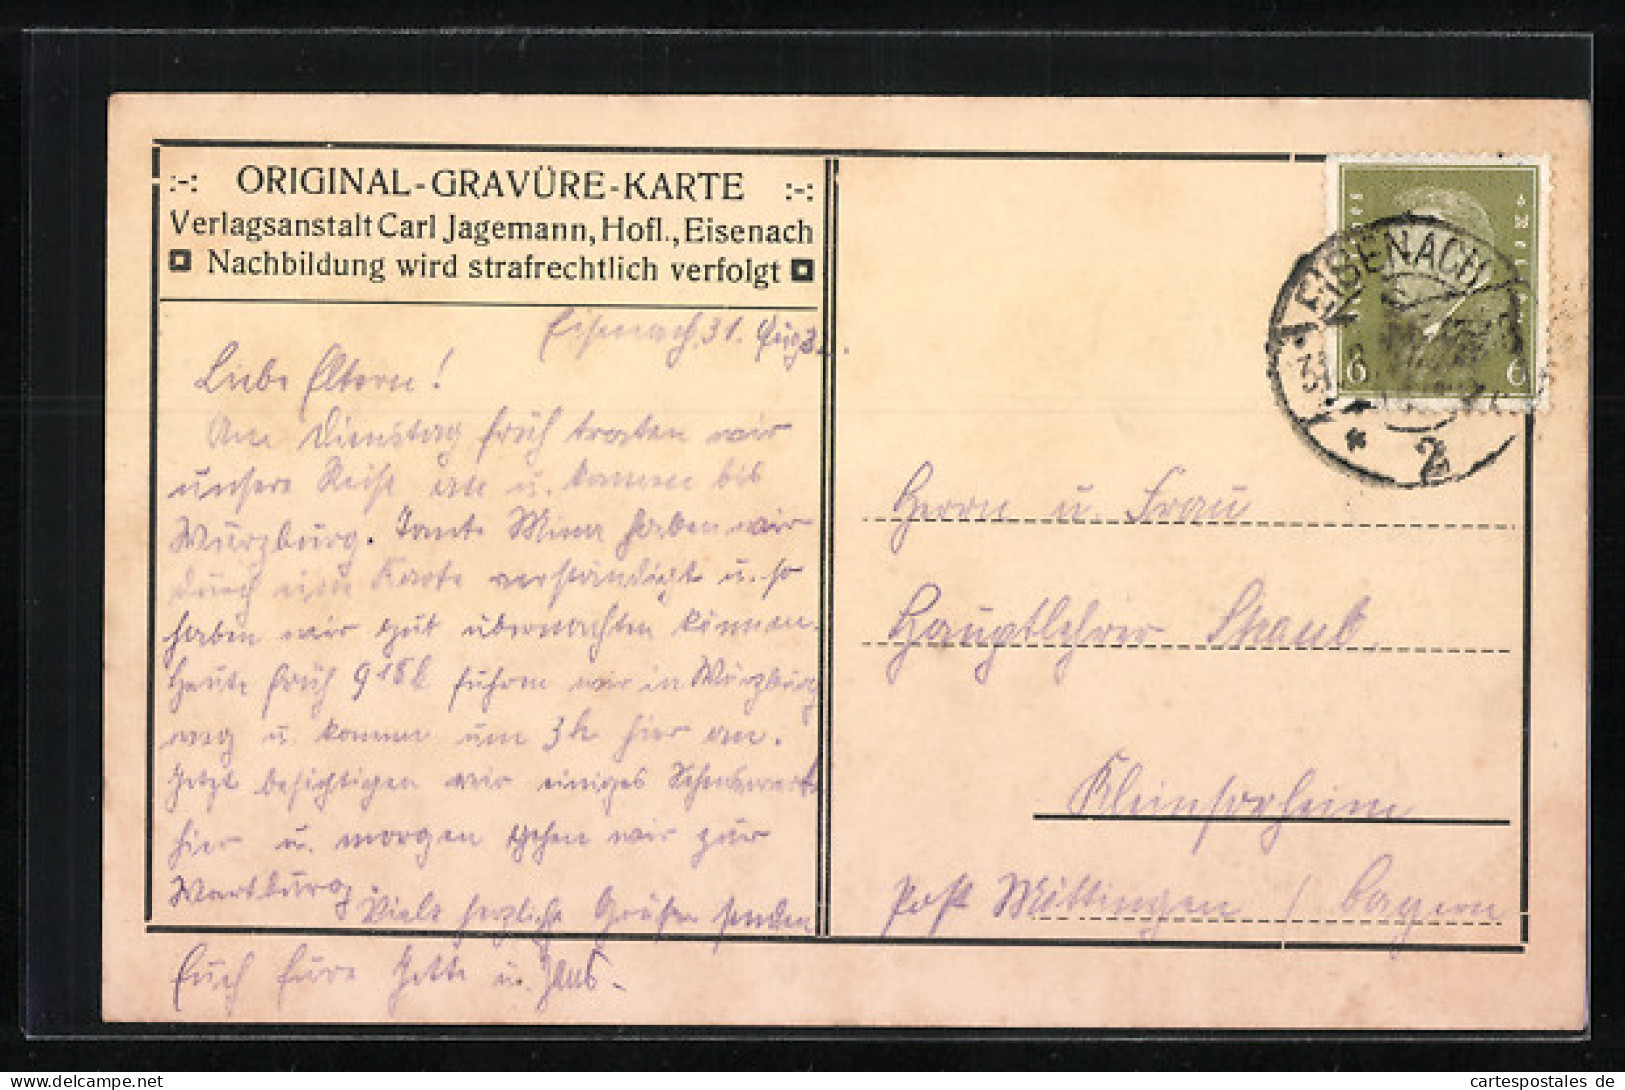 :-: ORIGINAL-GRAVÜRE-KARTE :-:
Verlagsanstalt Carl Jagemann, Hofl., Eisenach
Nachbildung wird strafrechtlich verfolgt
Eisenach, 31. Aug.
Liebe Eltern!
Am Dienstag früh traten wir
unsere Reise an u. kamen bis
Würzburg. Tante Mina haben wir
durch eine Karte verständigt u. so
haben wir gut übernachten können.
Heute früh 9 18 h fuhren wir in Würzburg
weg u. kamen um 3 h hier an.
Jetzt besichtigen wir einiges
hier u. morgen gehen wir zur
Wartburg. Viele herzliche Grüße senden
Euch Eure u.
EISENACH
31
* 2
6 6
Herrn u. Frau
Hauptlehrer
Kleinsorheim
Post Möttingen / Bayern
cartespostales.de